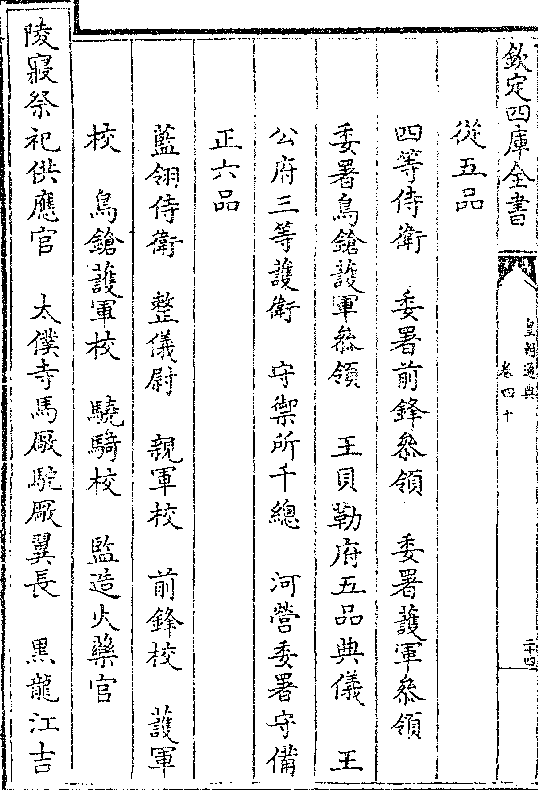 欽定四庫全書
皇朝通典
卷四十
二十四
從五品
四等侍衛　委署前鋒叅領　委署護軍叅領
委署鳥鎗護軍叅領　王貝勒府五品典儀　王
公府三等護衛　守禦所千總　河營委署守備
正六品
藍翎侍衛　整儀尉　親軍校　前鋒校　護軍
校　鳥鎗護軍校　驍騎校　監造火藥官
陵寢祭祀供應官　太僕寺馬廠駝廠翼長　黒龍江吉